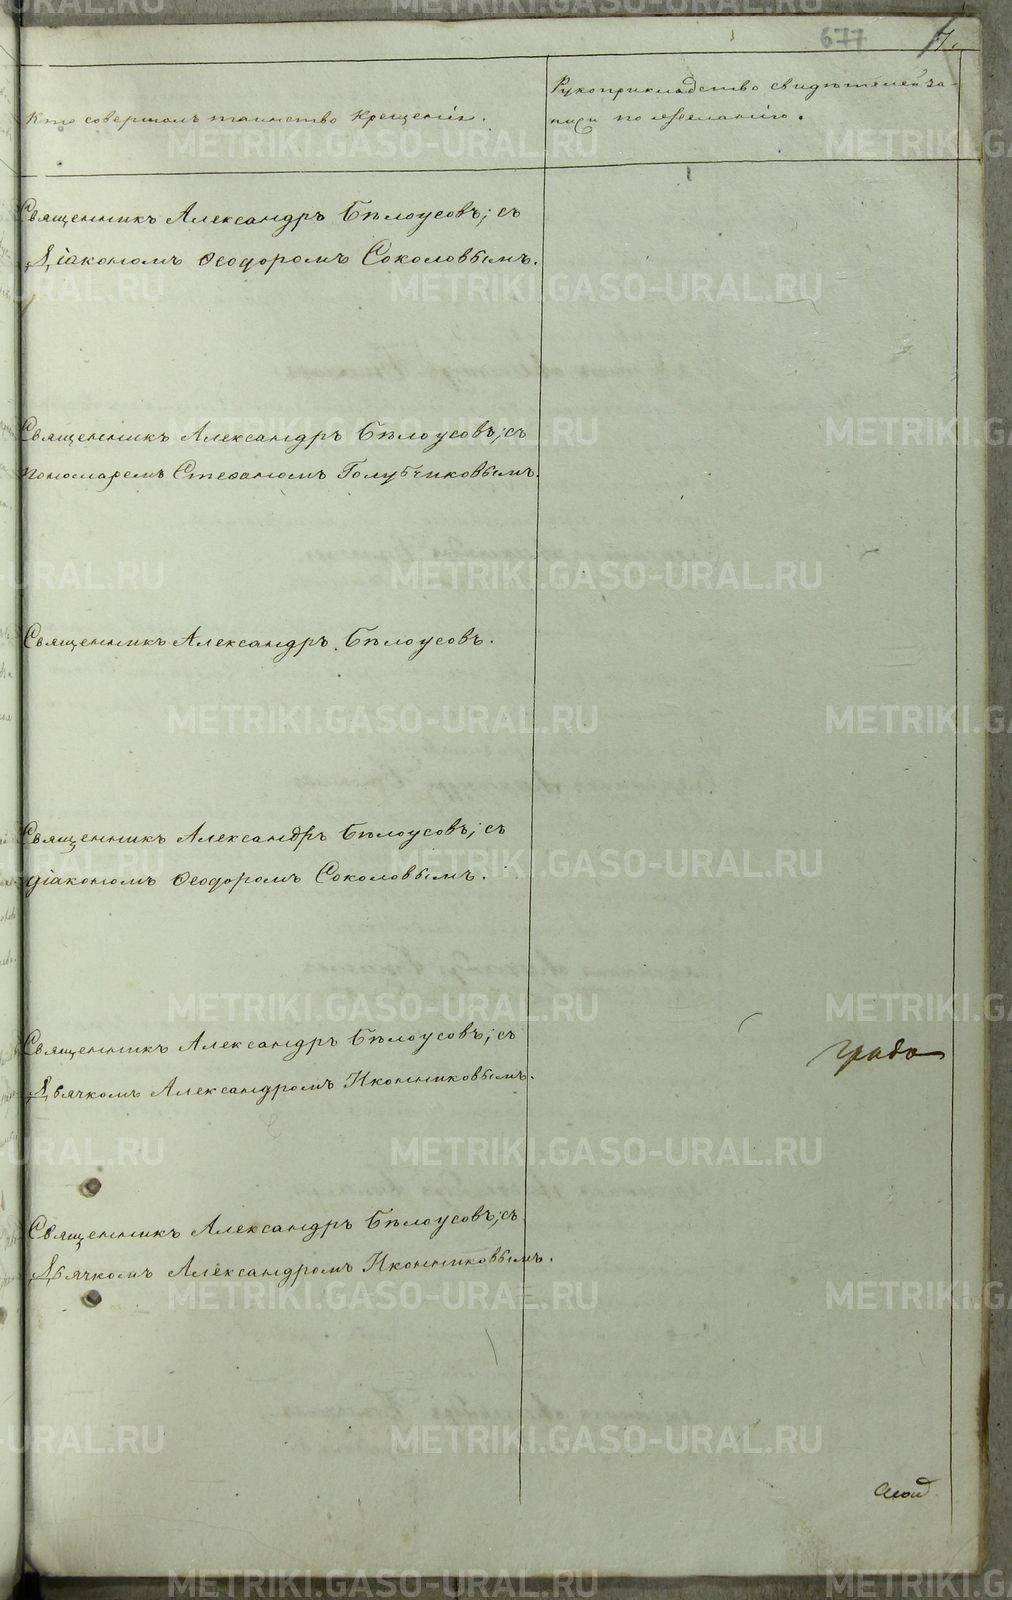 677
7.
Кто совершалъ таинство Крещенія.
Рукоприкладство свидѣтелей за-
писи по желанію.
Священникъ Александръ Бѣлоусовъ; съ
Діакономъ Ѳеодоромъ Соколовымъ.
Священникъ Александръ Бѣлоусовъ; съ
пономаремъ Стефаномъ Голубчиковымъ.
Священникъ Александръ Бѣлоусовъ.
Священникъ Александръ Бѣлоусовъ; съ
діакономъ Ѳеодоромъ Соколовымъ.
Священникъ Александръ Бѣлоусовъ; съ
Дьячкомъ Александромъ Иконниковымъ.
Священникъ Александръ Бѣлоусовъ; съ
Дьячкомъ Александромъ Иконниковымъ.
METRIKI.GASO-URAL.RU